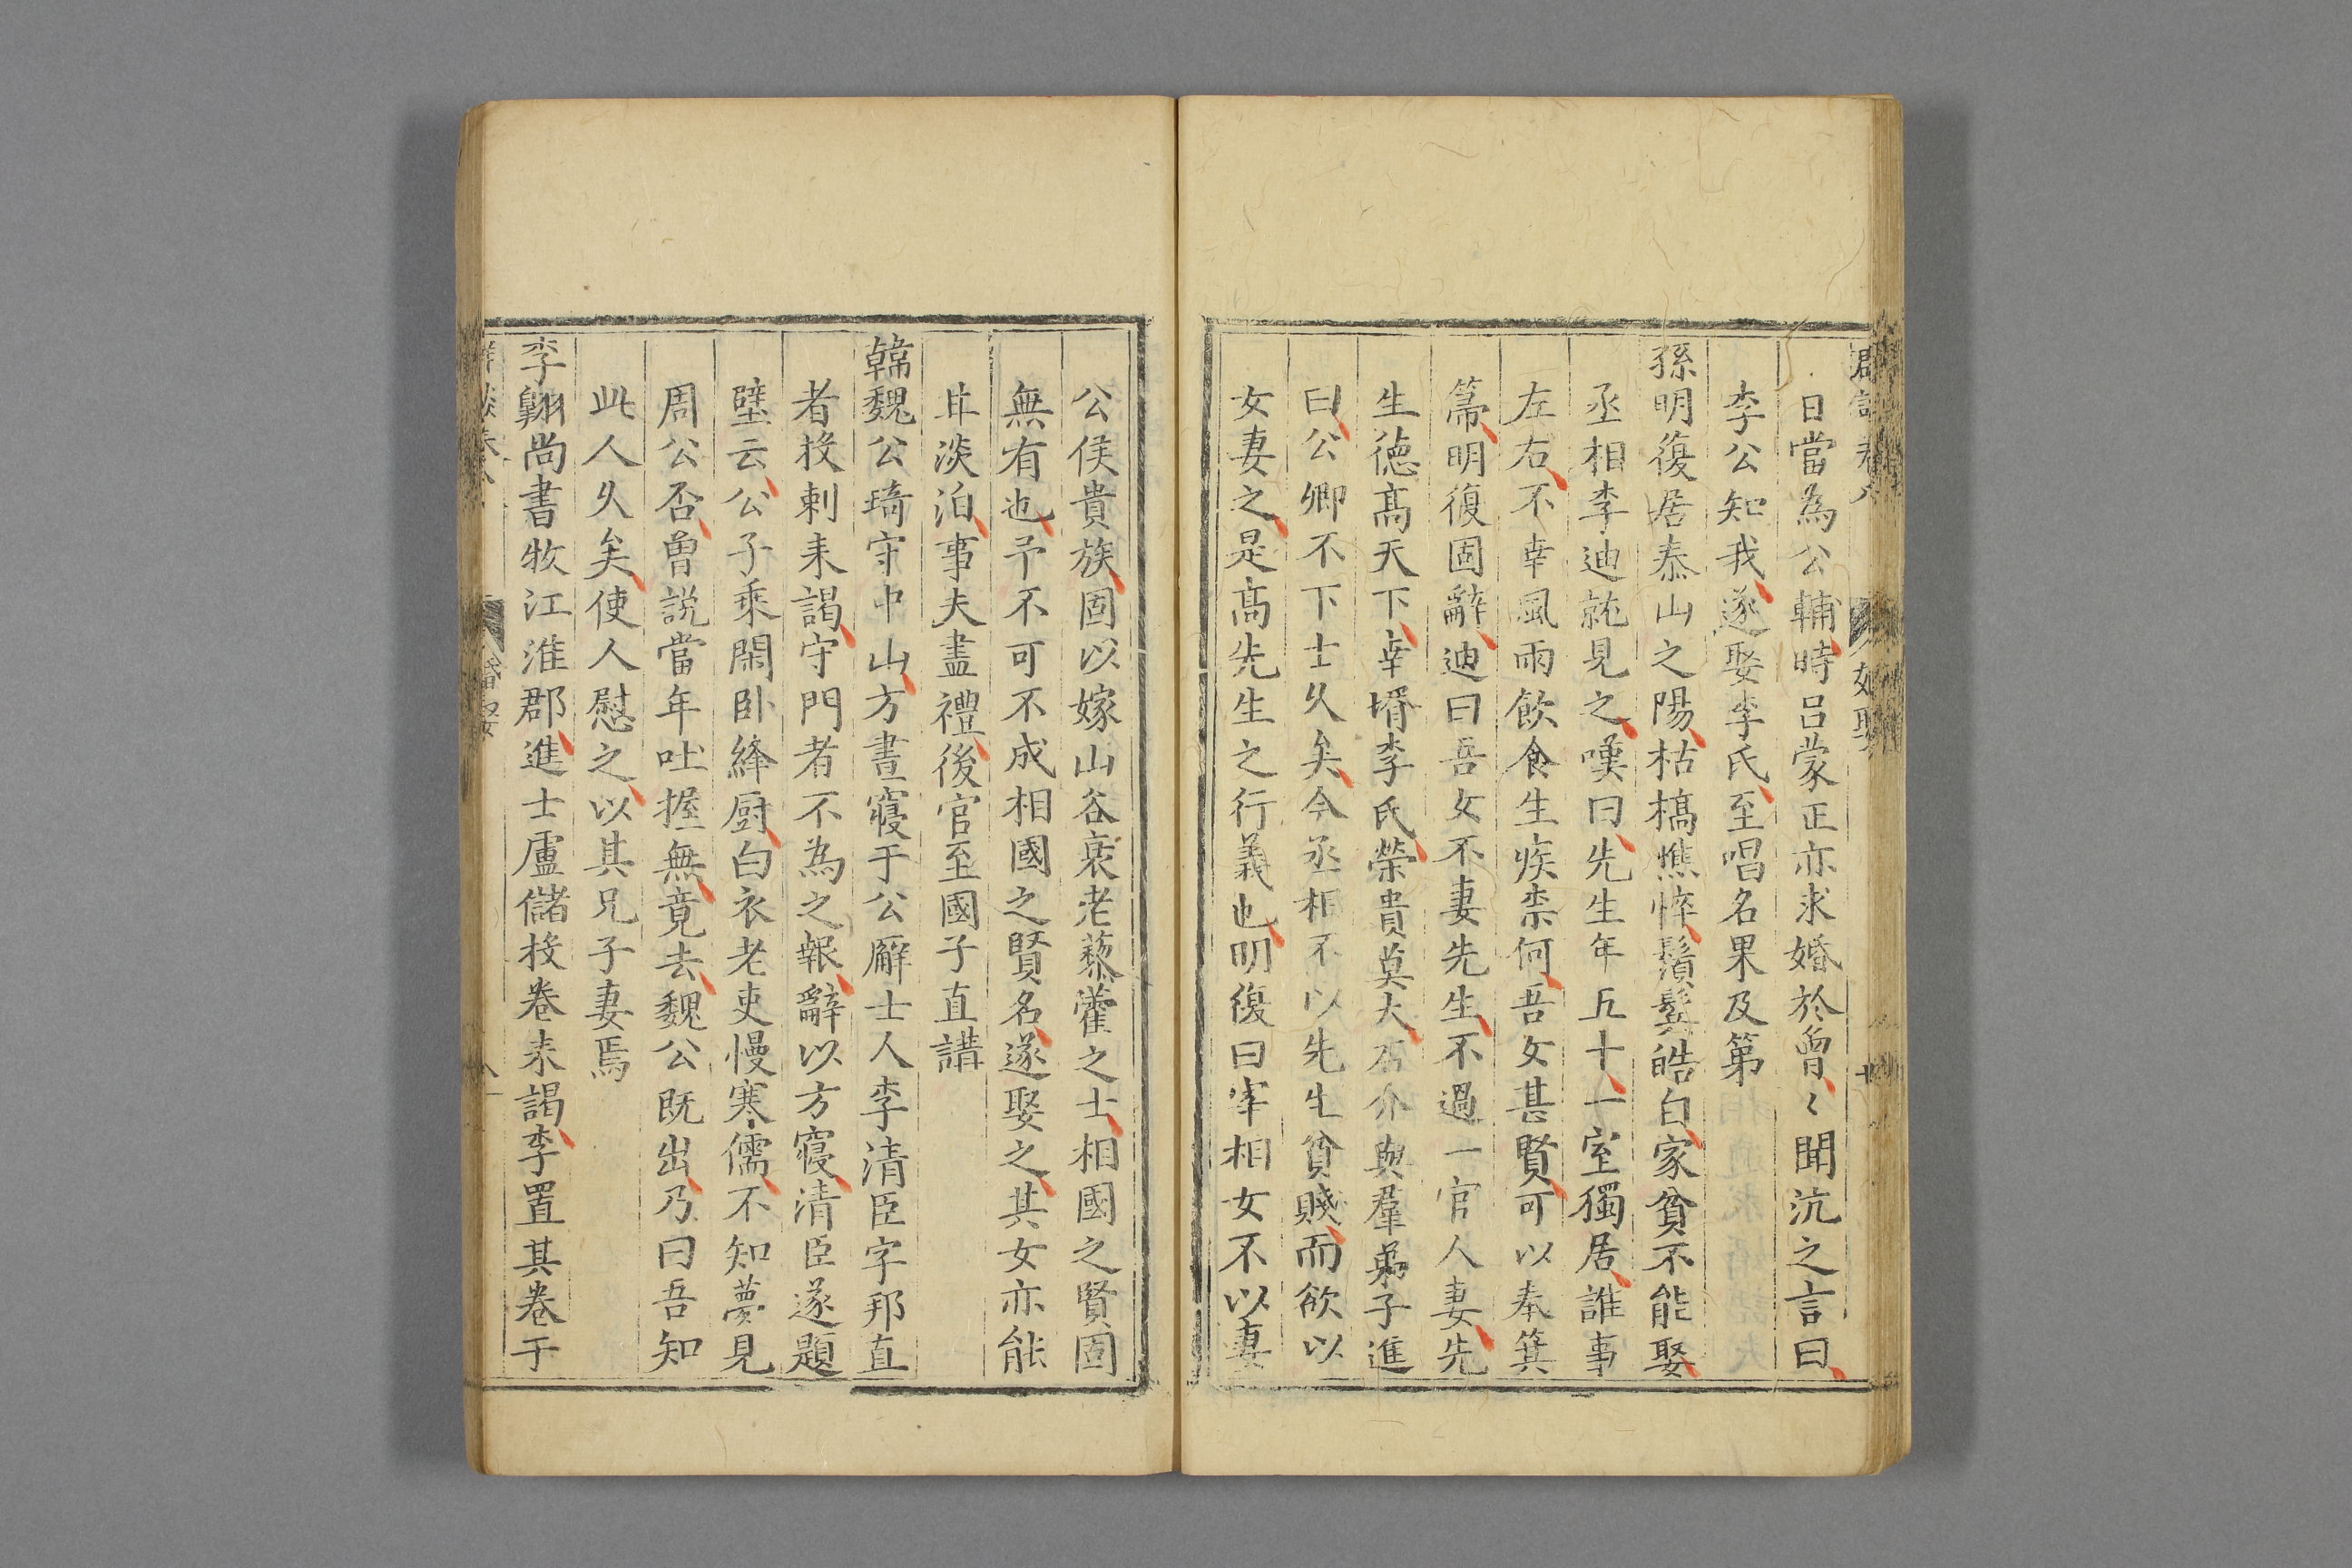 日當為公輔時吕蒙正亦求婚於曾〻聞沆之言曰
李公知我遂娶李氏至唱名果及第
孫明復居泰山之陽枯槁憔悴鬚髮皓白家貧不能娶
丞相李迪就見之嘆曰先生年五十一室獨居誰事
左右不幸風雨飲食生疾柰何吾女甚賢可以奉箕
箒明復固辭迪曰吾女不妻先生不過一官人妻先
生德髙天下幸壻李氏榮貴莫大石介與羣弟子進
曰公卿不下士久矣今丞相不以先生貧賤而欲以
女妻之是髙先生之行義也明復曰宰相女不以妻
公侯貴族固以嫁山谷衰老藜藿之士相國之賢固
無有也予不可不成相國之賢名遂娶之其女亦能
甘淡泊事夫盡禮後官至國子直講
韓魏公琦守中山方晝寢于公廨士人李清臣字邦直
者投刺来謁守門者不為之報辭以方寢清臣遂題
壁云公子乘閑卧絳厨白衣老吏慢寒儒不知夢見
周公否曾説當年吐握無竟去魏公既出乃曰吾知
此人久矣使人慰之以其兄子妻焉
李翺尚書牧江淮郡進士盧儲投卷来謁李置其卷于